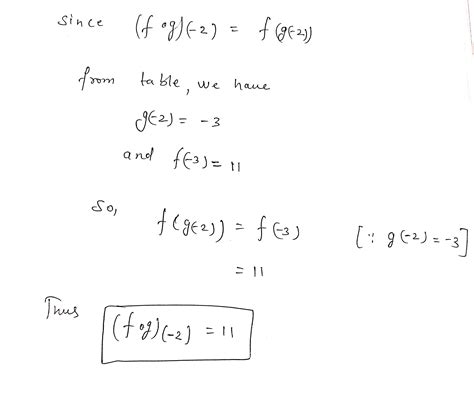 since (f∘g)(-2) = f(g(-2))
from table, we have
g(-2) = -3
and f(-3) = 11
So, f(g(-2)) = f(-3) [∵ g(-2) = -3]
= 11
Thus
(f∘g)(-2) = 11